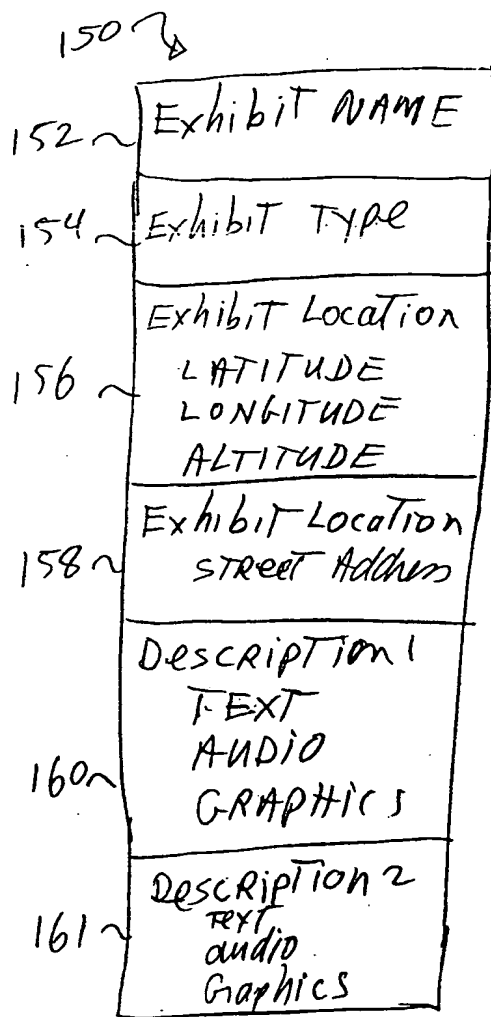 150
152 Exhibit NAME
154 Exhibit Type
Exhibit Location
LATITUDE
156 LONGITUDE
ALTITUDE
Exhibit Location
158 STReet Address
Description 1
TEXT
AUDIO
160 GRAPHICS
Description 2
Text
161 audio
Graphics